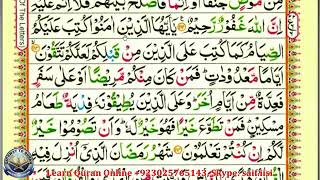 مِنْ مُّوْصٍ جَنَفًا اَوْ اِثْمًا فَاَصْلَحَ بَيْنَهُمْ فَلَاۤ اِثْمَ عَلَيْهِ
اِنَّ اللّٰهَ غَفُوْرٌ رَّحِيْمٌ يٰۤاَيُّهَا الَّذِيْنَ اٰمَنُوْا كُتِبَ عَلَيْكُمُ
الصِّيَامُ كَمَا كُتِبَ عَلَى الَّذِيْنَ مِنْ قَبْلِكُمْ لَعَلَّكُمْ تَتَّقُوْنَ
اَيَّامًا مَّعْدُوْدٰتٍ فَمَنْ كَانَ مِنْكُمْ مَّرِيْضًا اَوْ عَلٰى سَفَرٍ
فَعِدَّةٌ مِّنْ اَيَّامٍ اُخَرَ وَعَلَى الَّذِيْنَ يُطِيْقُوْنَهٗ فِدْيَةٌ طَعَامُ
مِسْكِيْنٍ فَمَنْ تَطَوَّعَ خَيْرًا فَهُوَ خَيْرٌ لَّهٗ وَاَنْ تَصُوْمُوْا خَيْرٌ
لَّكُمْ اِنْ كُنْتُمْ تَعْلَمُوْنَ شَهْرُ رَمَضَانَ الَّذِيْۤ اُنْزِلَ فِيْهِ
Of The Letters
Learn Quran Online +923025765143, Skype: